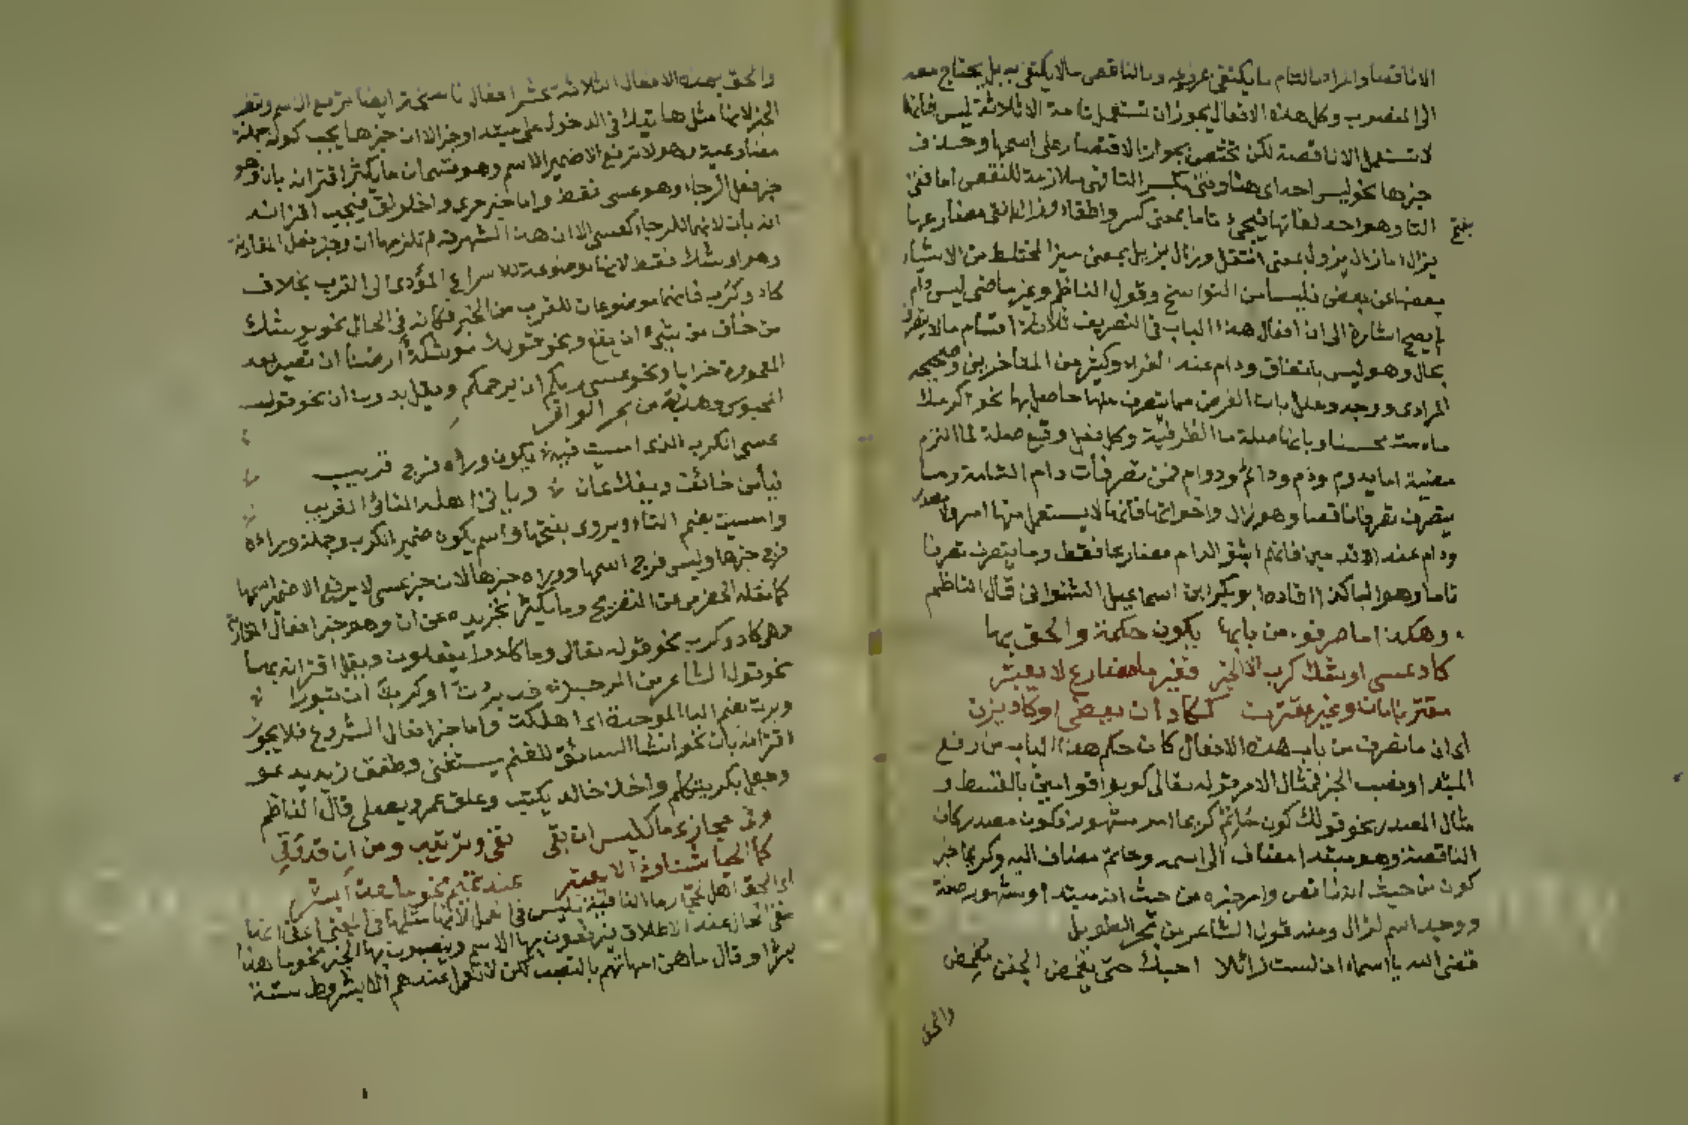 الا ناقصا والمراد بالتام ما يكتفى بمرفوعه وبالناقص ما لا يكتفى به بل يحتاج معه
الى المنصوب وكل هذه الافعال يجوز ان تستعمل تامة الا ثلاثة ليس فانها
لا تستعمل الا ناقصة لكن تختص بجواز الاقتصار على اسمها وحذف
خبرها نحو ليس احد اى هنا وفتئ بكسر التا فهى ملازمة للنقص اما فتئ
بفتح
التا وهو احد لغاتها فيجئ تاما بمعنى كسر واطفاء وزال التى مضارعها
يزال اما زال يزول بمعنى انتقل وزال يزيل بمعنى ميز المختلط من الاشياء
بعضها من بعض فليسا من النواسخ وقول الناظم وغير ماضى ليس دام
لم يصح اشارة الى ان افعال هذا الباب فى التصريف ثلاثة اقسام ما لا يتصرف
بحال وهو ليس باتفاق ودام عند الفراء وكثير من المتاخرين وصححه
المرادى ووجه وعلل بان الغرض مما يتصرف منها حاصل بها نحو اكرمك
ما دمت محسنا وبانها صلة ما الظرفية وكل فعل وقع صلة لما التزم
مضيه اما يدوم ودم ودائم ودوام فمن تصرفات دام التامة وما
يتصرف تصرفا ناقصا وهو زال واخواتها فانها لا يستعمل منها امر ولا مصدر
ودام عند الاقدمين فانهم اثبتوا لدام مضارعا فقط وما يتصرف تصرفا
تاما وهو الباقى كذا افاده ابو بكر ابن اسماعيل الشنوانى قال الناظم
وهكذا ما صرفوه من بابها يكون حكمة والحق بها
كاد عسى اوشك كرب الا الخبر فغير ما مضارع لا يعتبر
مقتر بابان وغير مقترن ككاد ان يعطى او كاد يزن
اى ان ما تصرف من باب هذه الافعال كان حكم هذا الباب من رفع
المبتدا ونصب الخبر فمثال الامر قوله تعالى كونوا قوامين بالقسط و
مثال المصدر نحو قولك كون حاتم كريما امر مشهور فكون مصدر كان
الناقصة وهو مبتدا مضاف الى اسمه وحاتم مضاف اليه وكريما خبر
كون من حيث انه ناقص وامر خبره من حيث انه مبتدا ومشهور صفة
ووحيد اسم لزال ومنه قول الشاعر من بحر الطويل
قضى الله يا اسماء ان لست زائلا احبك حتى يغمض الجفن مغمض
والحق
والحق بهذه الافعال الثلاثة عشر افعال ناسخة ايضا ترفع الاسم وتنصب
الخبر لانها مثل هاتيك فى الدخول على مبتدا وخبر الا ان خبرها يجب كونه جملة
مضارعية وهو لا ترفع الا ضمير الاسم وهو قسمان ما يكثر اقترانه بان وهو
خبر فعل الرجاء وهو عسى فقط واما خبر حرى واخلولق فيجب اقترانه
انه بان لانهما للرجاء كعسى الا ان هذا الشهرته لم تلزمها ان وخبر فعل المقاربة
وهو اوشك فقط لانها موضوعة للاسراع المؤدى الى القرب بخلاف
كاد وكرب فانهما موضوعات للقرب من الخبر فكانه فى الحال نحو يوشك
من خاف من شئ ان يقع ونحو قولك موشكة ارضنا ان تصير بعد
المعمورة خرابا ونحو عسى ربكم ان يرحمكم ويقل بدون ان نحو قول
المحبوس وهدبة من بحر الوافر
عسى الكرب الذى امسيت فيه يكون وراءه فرج قريب
فيأمن خائف ويفك عان ويأتى اهله النائى الغريب
وامسيت بضم التاء ويروى بفتحها واسم يكون ضمير الكرب وجملة وراءه
فرج خبرها وليس فرج اسمها ووراه خبرها لان خبر عسى لا يرفع الا ضمير اسمها
كما نقله الخضرى عن التصريح وما يكثر تجريده من ان وهو خبر افعال المقاربة
وهى كاد وكرب نحو قوله تعالى وما كادوا يفعلون ويقل اقترانه بها
نحو قول الشاعر من الرجز قد برت او كربت ان تبورا
وبرت بضم البا الموحدة اى اهلكت واما خبر افعال الشروع فلا يجوز
اقترانه بان نحو انشا السائق للغنم يستغنى وطفق زيد يدعو
وجعل بكر يتكلم واخذ خالد يكتب وعلق عمر ويصلى قال الناظم
وفى حجازى ما كليس ان بقى نفى وترتيب ومن ان قد نقى
عند تميم نحو ما هذا بشر
اى الحق اهل الحجاز ما النافية بليس فى العمل لانها مثلها فى المعنى اعنى انها
نفى الحال عند الاطلاق فيرفعون بها الاسم وينصبون بها الخبر نحو ما هذا
بشرا وقال ما هن امهاتهم بالنصب لكن لا تعمل عندهم الا بشروط ستة